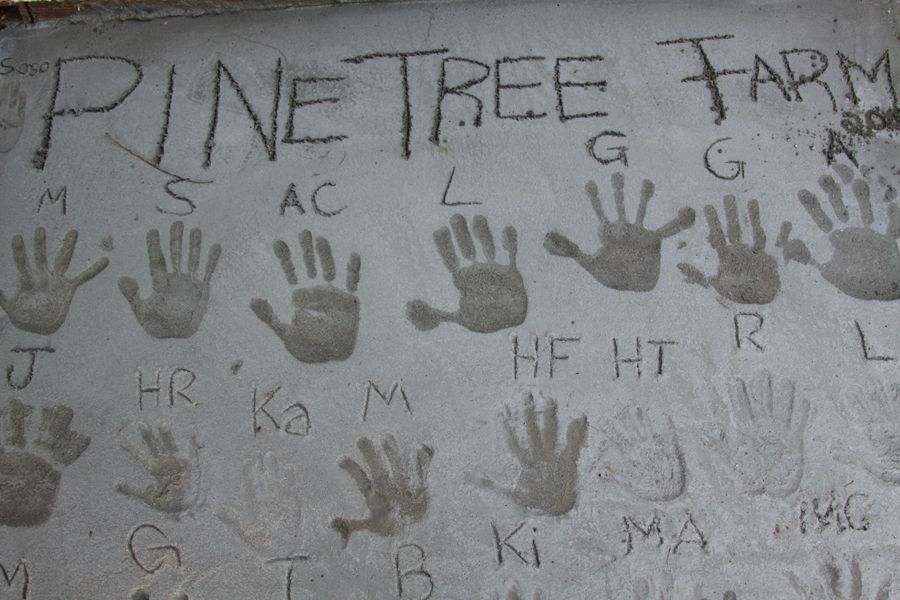 Soso PINE TREE FARM
M S AC L G G A
J HR Ka M HF HT R L
M G T B Ki MA MG